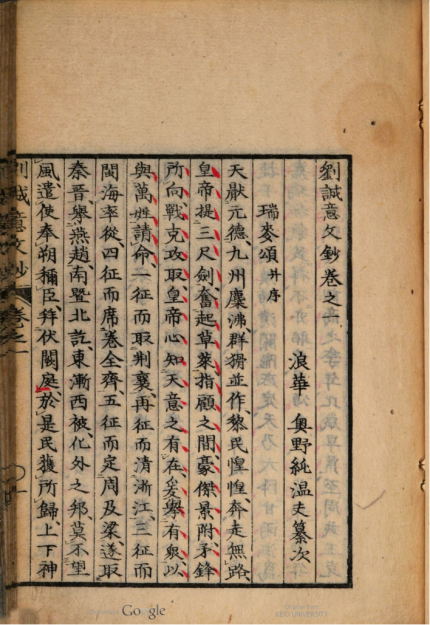 劉誠意文鈔卷之一
浪華 奧野純溫夫纂次
瑞麥頌并序
天厭元德、九州麋沸、群猾並作、黎民惶惶、奔走無路、
皇帝提三尺劍、奮起草萊、指顧之間、豪傑景附、矛鋒
所向、戰克攻取、皇帝心知天意之有在、爰舉有衆、以
與萬姓請命、一征而取荆襄、再征而清浙江、三征而
閩海率從、四征而席卷全齊、五征而定周及梁、遂取
秦晉、舉燕趙、南暨北訖、東漸西被、化外之邦、莫不望
風遣使奉朔稱臣、拜伏闕庭、於是民獲所歸、上下神
劉誠意文鈔 卷之一
Google
KEIO UNIVERSITY